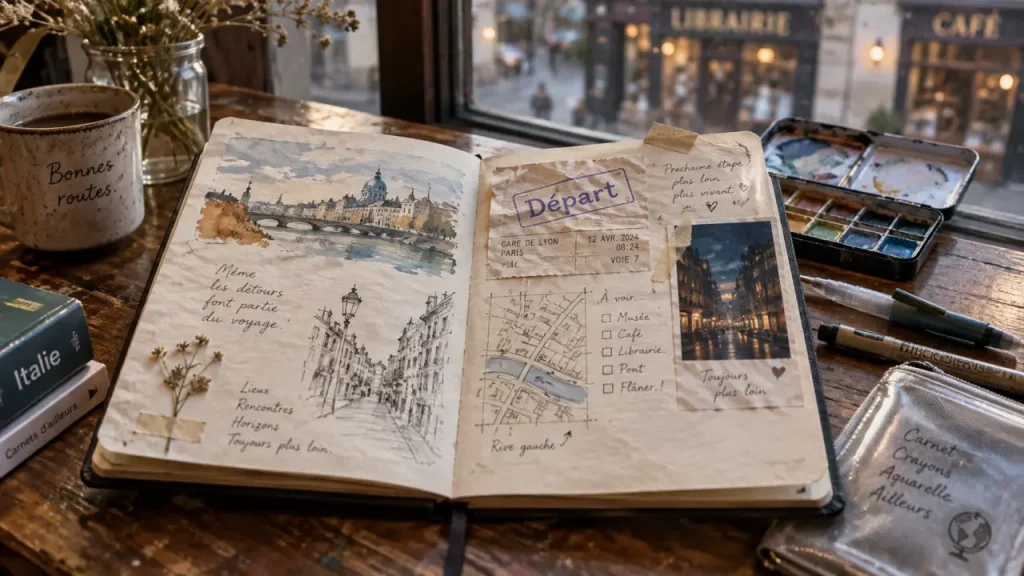 LIBRAIRIE
CAFÉ
Bonnes
routes.
Italie
Carnets d'ailleurs
Même
les détours
font partie
du voyage.
Lieux
Rencontres
Horizons
Toujours plus loin.
Départ
GARE DE LYON
PARIS
12 AVR. 2024
08:24
VOIE 7
Prochaine étape
plus loin
plus vivant
À voir...
Musée
Café
Librairie.
Pont
Flâner.!
Rive gauche
Toujours
plus loin
Carnet
Crayons
Aquarelle
Ailleurs